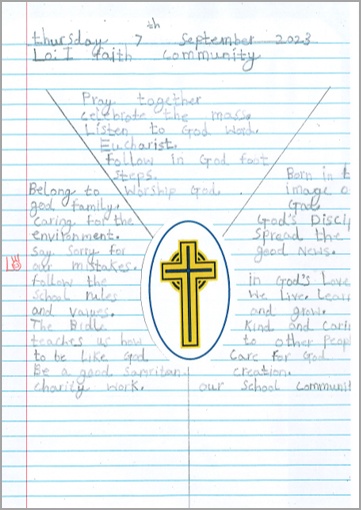 thursday 7th september 2023
Lo: I faith community
Pray together
celebrate the mass.
Listen to God word.
Eucharist.
follow in God foot
steps.
worship God.
Belong to
god family.
caring for the
environment.
say sorry for
our mistakes.
follow the
school rules
and values.
The Bible
teaches as how
to be like God
Be a good samritan.
charity work.
Born in t
image o
God.
God's Discip
Spread the
good News.
in God's Love
We live. Learn
and grow.
Kind and cari
to other peopl
Care for God
creation.
our School communit